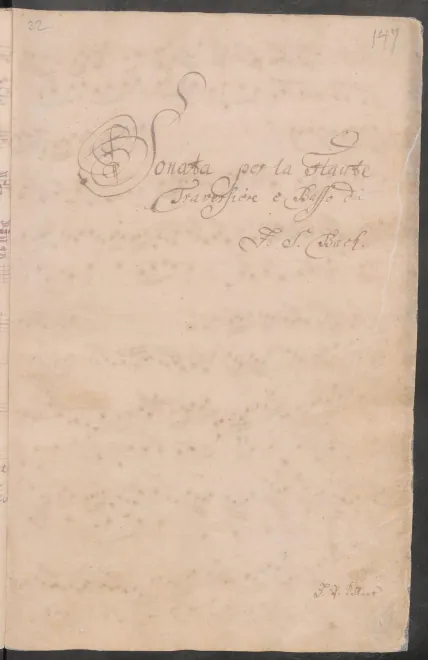 22
147
Sonata per la Flaute
Traversiere e Basso di
J. S. Bach.